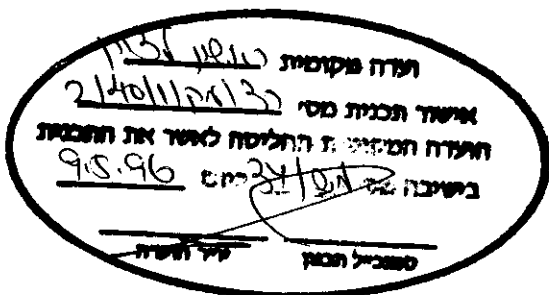 ועדה מקומית ראשון לציון
אישור תכנית מס' רצ/מק/2/40/1
הועדה המקומית החליטה לאשר את התכנית
בישיבה מס' ביום 9.5.96
סמנכ"ל תכנון יו"ר הועדה